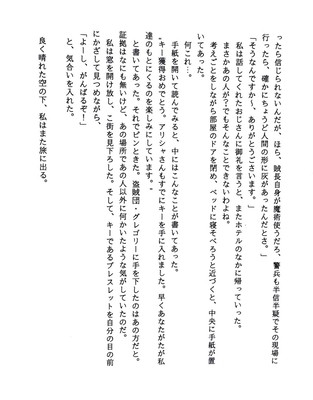 ったら信じられないんだが、ほら、賊長自身が魔術使うだろ、警兵も半信半疑でその現場に
行ったら、確かにちょうど人間の形に灰があったんだとさ。」
「そうなんですか…、ありがとうございます。」
私は話してくれたおじさんに御礼を言うと、またホテルのなかに帰っていった。
まさかあの人が？でもそんなことできないわよね。
考えごとをしながら部屋のドアを閉め、ベッドに寝そべろうと近づくと、中央に手紙が置
いてあった。
何これ…。
手紙を開いて読んでみると、中にはこんなことが書いてあった。
"キー獲得おめでとう。アリシャさんもすでにキーを手に入れました。早くあなたがたが私
達のもとにくるのを楽しみにしています。"
と書いてあった。それでピンときた。盗賊団・グレゴリーに手を下したのはあの方だと。
証拠はなにも無いけど、あの場所であの人以外に何かいたような気がしていたのだ。
私は窓を開け放し、こ街を見下ろした。そして、キーであるブレスレットを自分の目の前
にかざして見つめながら、
「よーし、がんばるぞ！」
と、気合いを入れた。
良く晴れた空の下、私はまた旅に出る。